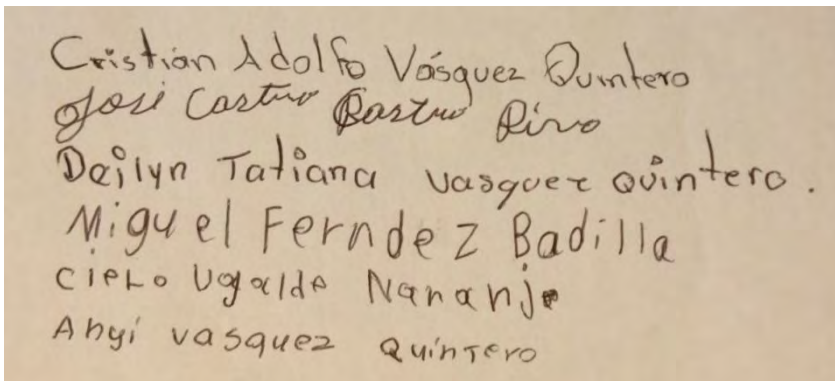 Cristian Adolfo Vásquez Quintero
José Castro Castro Pino
Deilyn Tatiana vasquez quintero.
Miguel Ferndez Badilla
cieLo Ugalde Naranjo
Angi vasquez Quintero